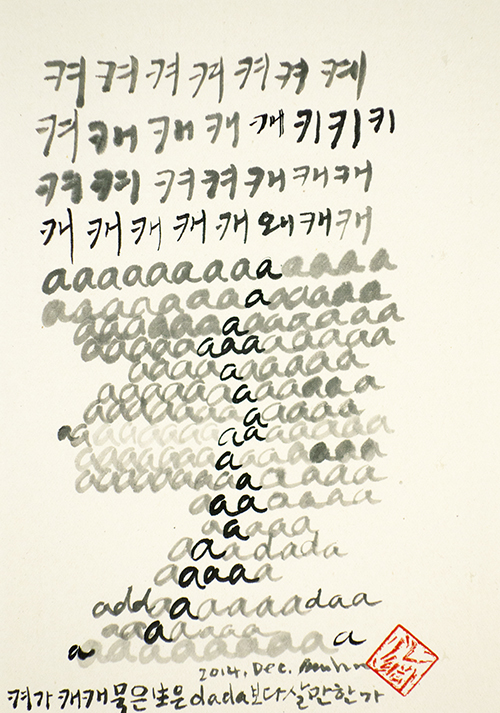 켜 켜 켜 켜 켜 켜 켸
켜 캐 캐 캐 캐 키 키 키
켜 켸 켜 켜 캐 캐 캐
캐 캐 캐 캐 캐 왜 캐 캐
aaaaaaaaaaaaa
aaaaaaaaaaaa
aaaaaaaaaaaa
aaaaaaaaaaaa
aaaaaaaaaa
aaaaaaaaaaa
aaaaaaaaaa
aaaaaaaaaaaa
aaaaaaaaaaa
aaaaaaaaaaa
aaaaaaa
aaaaa
aaadada
aaaaa
addaaaaaadaa
aaaaaa
aaaaaaaaaa
2014. Dec.
켜가 캐캐묵은 生은 dada보다 살만한가